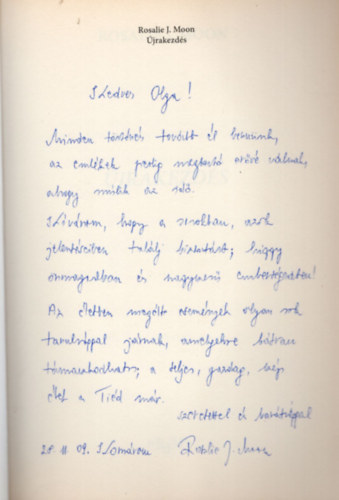 Rosalie J. Moon
Újrakezdés
Kedves Olga!
Minden történés tovább él bennünk,
az emlékek pedig megtartó erővé válnak,
ahogy múlik az idő.
Kívánom, hogy a sorokban, azok
jelentéseiben találj bizonságot; higgy
önmagadban és nagyszerű emberségedben!
Az életben megélt események olyan sok
tanulsággal járnak, amelyekre bátran
támaszkodhatsz, a teljes, gazdag, szép
élet a Tiéd már.
szeretettel és barátsággal
III. 09. Komárom Rosalie J. Moon